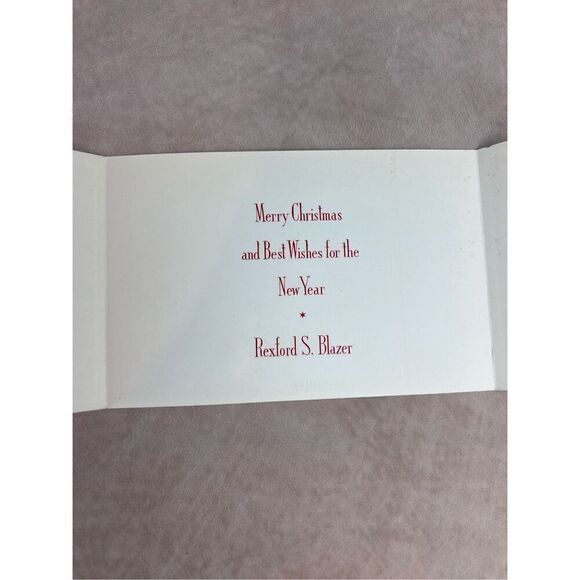 Merry Christmas
and Best Wishes for the
New Year
*
Rexford S. Blazer